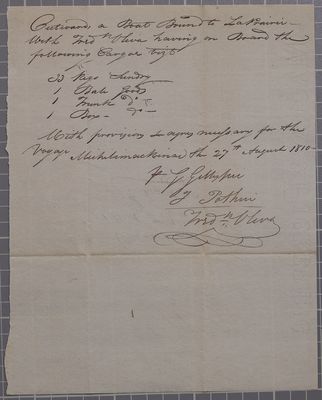 Outward, a Boat Bound to La Prairie
With Fredk Oliva having on Board the
following Cargoe
33 Kegs Sundry
1 Bale Goods
1 Trunk do
1 Box do
With provisions &
for the
Voyage Michilimackinac the 27th August 1810
Fredk Oliva